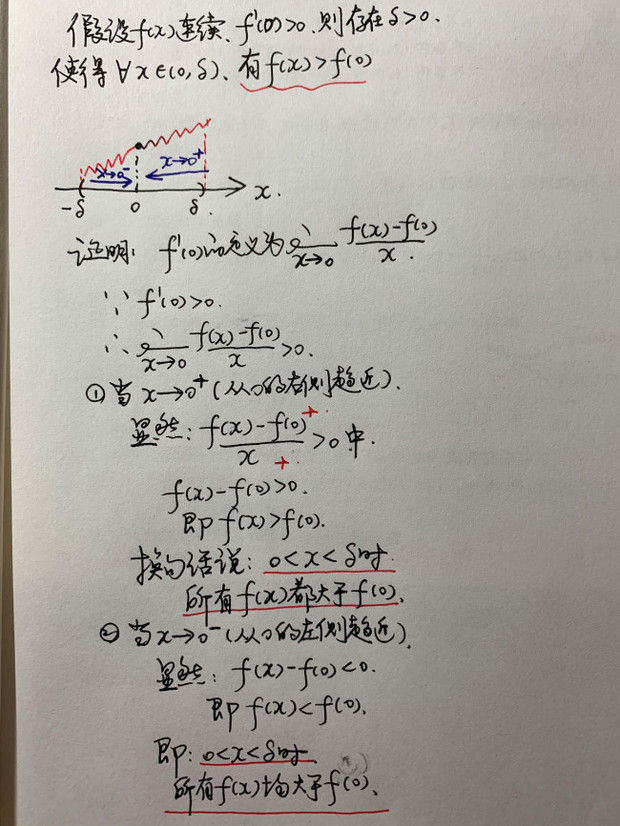 假设f(x)连续、f'(0)>0, 则存在δ>0.
使得 ∀x∈(0,δ)、有f(x)>f(0)
x→0⁻ x→0⁺
-δ 0 δ x.
证明: f'(0)的定义为 lim x→0 f(x)-f(0)/x.
∵ f'(0)>0.
∴ lim x→0 f(x)-f(0)/x >0.
①当 x→0⁺(从0的右侧趋近).
显然: f(x)-f(0)⁺/x₊ >0 中.
f(x)-f(0)>0.
即 f(x)>f(0).
换句话说: 0<x<δ时.
所有f(x)都大于f(0).
②当x→0⁻(从0的左侧趋近).
显然: f(x)-f(0)<0.
即 f(x)<f(0).
即: 0<x<δ时
所有f(x)均大于f(0)、